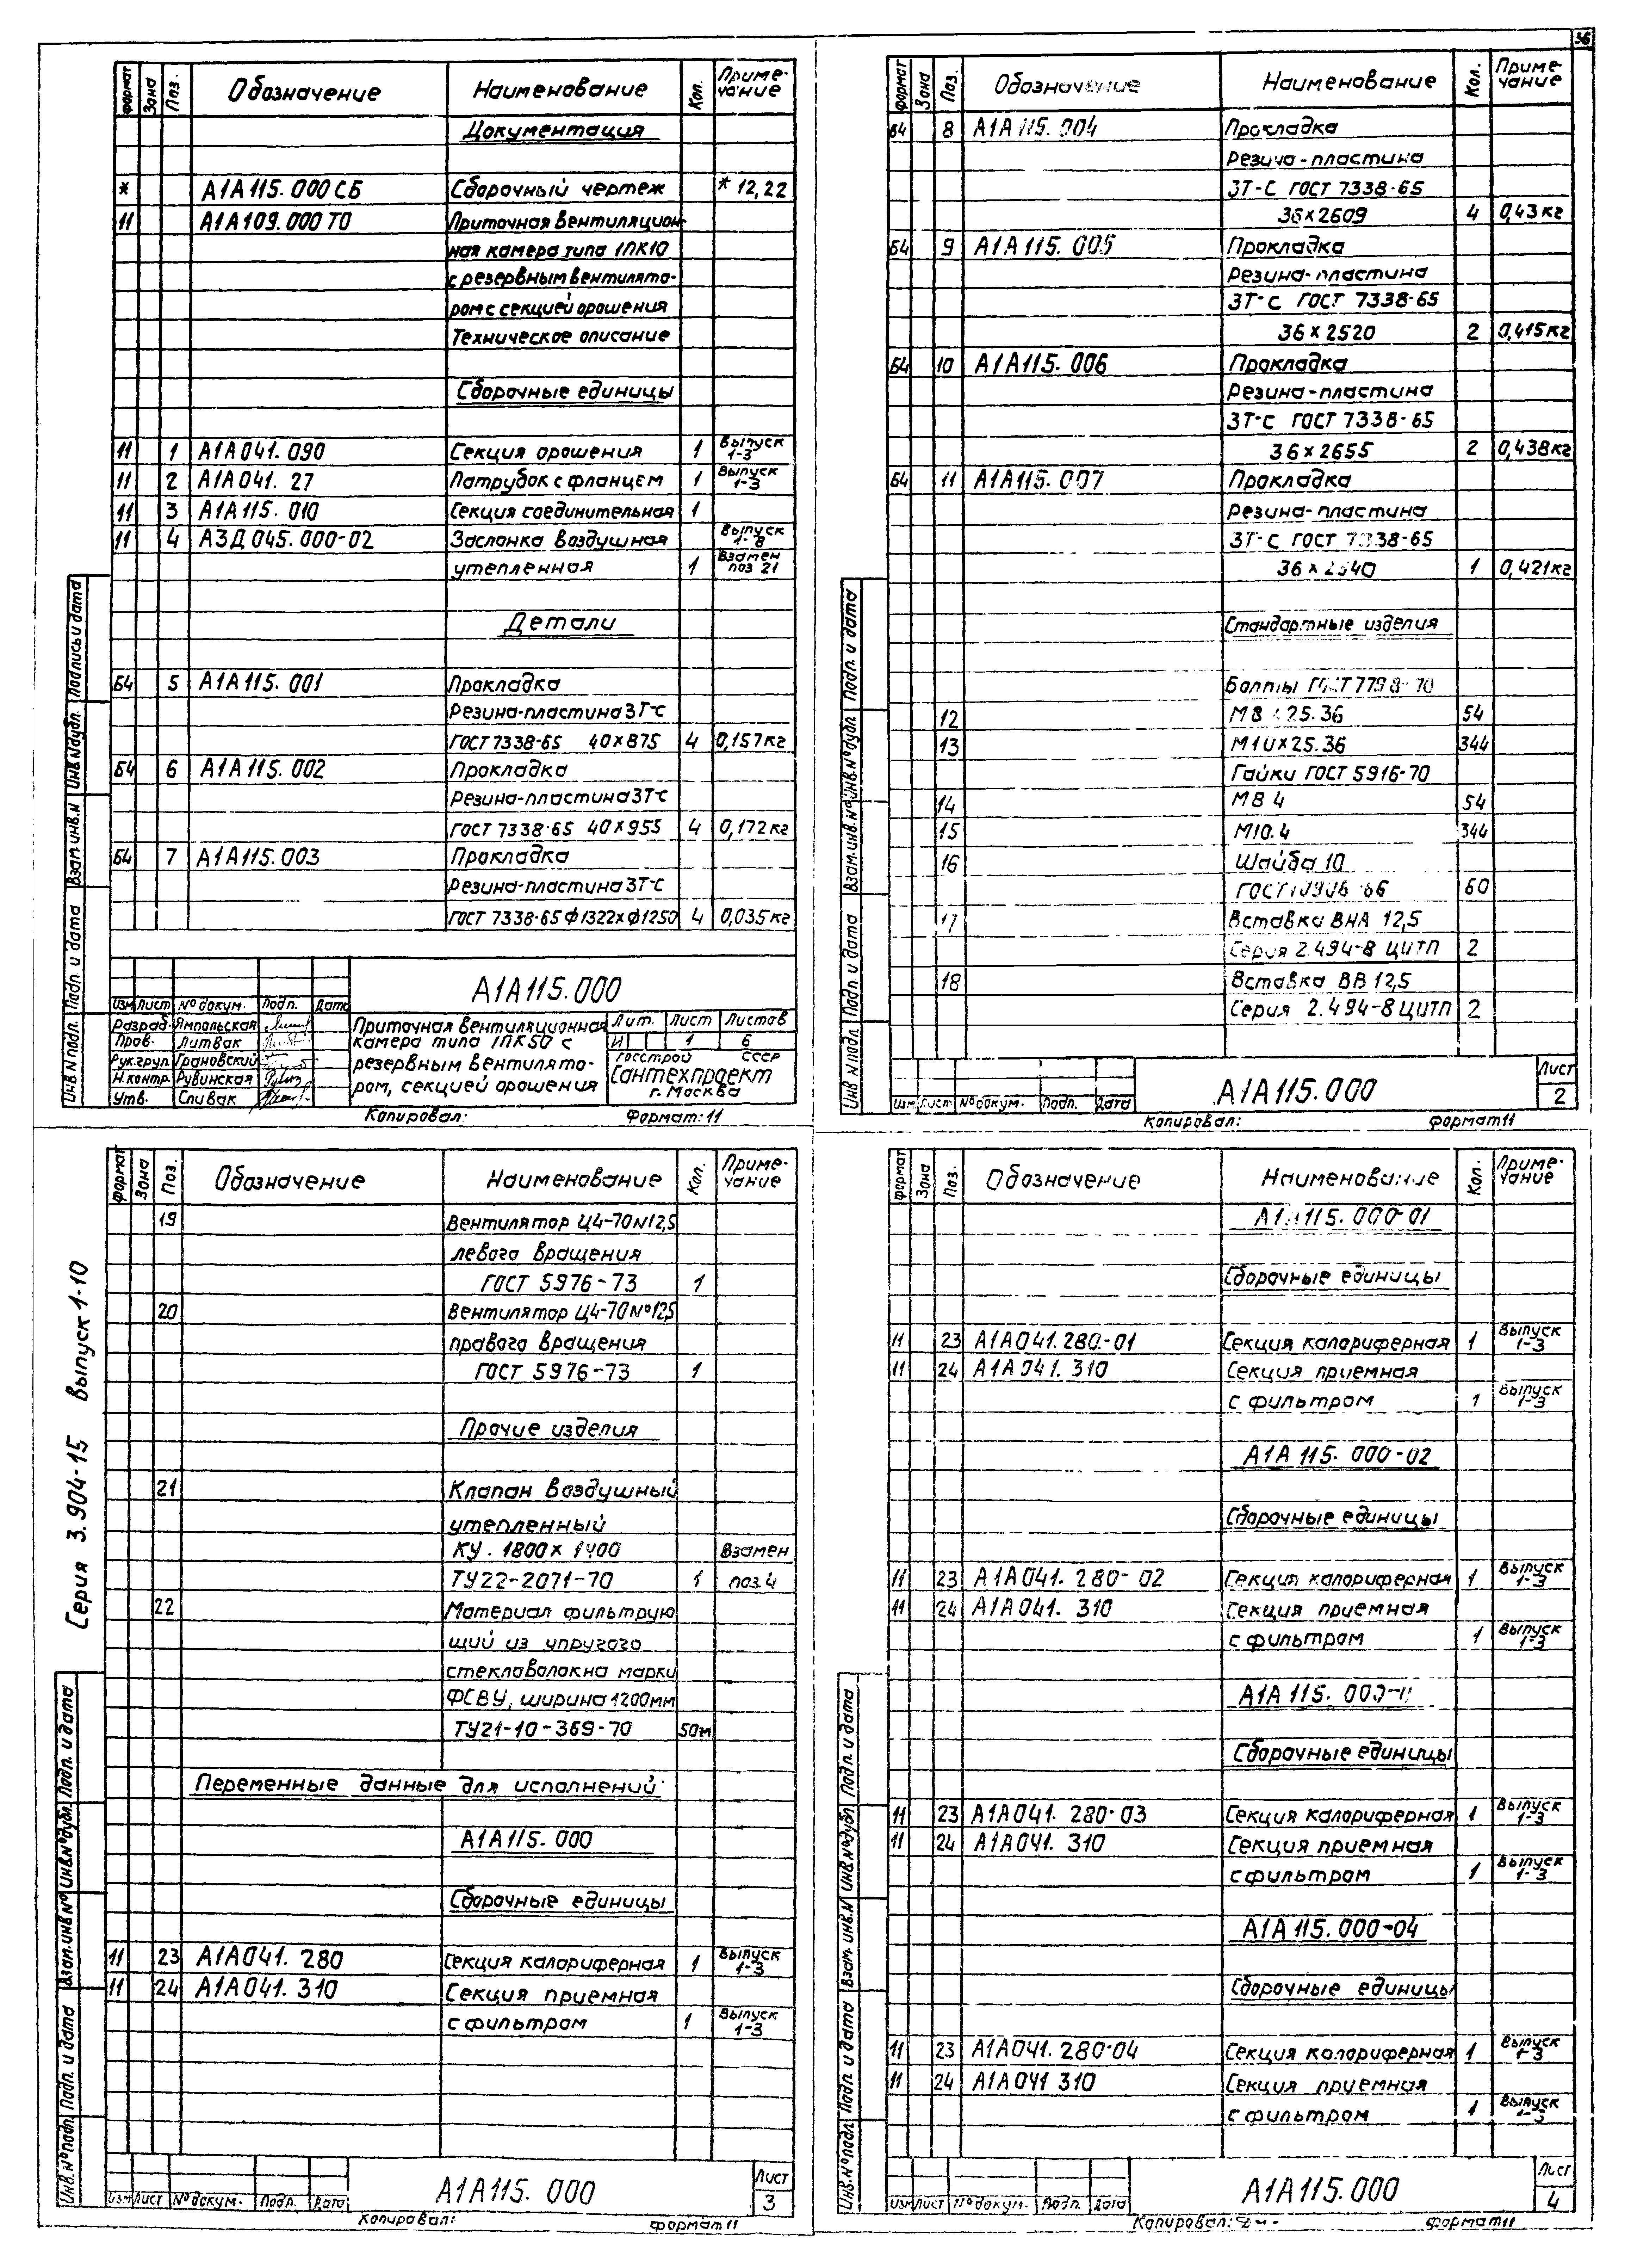 56
формат Зона Поз. Обозначение Наименование Кол. Приме-
чание
Документация
* А1А115.000СБ Сборочный чертеж * 12,22
11 А1А109.000 ТО Приточная вентиляцион-
ная камера типа 1ПК10
с резервным вентилято-
ром с секцией орошения
Техническое описание
Сборочные единицы
11 1 А1А041.090 Секция орошения 1 Выпуск 1-3
11 2 А1А041.27 Патрубок с фланцем 1 Выпуск 1-3
11 3 А1А115.010 Секция соединительная 1
11 4 АЗД045.000-02 Заслонка воздушная Выпуск 1-8
утепленная 1 Взамен поз 21
Детали
Б4 5 А1А115.001 Прокладка
Резина-пластина 3Т-С
ГОСТ 7338-65 40×875 4 0,157кг
Б4 6 А1А115.002 Прокладка
Резина-пластина 3Т-С
ГОСТ 7338-65 40×955 4 0,172кг
Б4 7 А1А115.003 Прокладка
Резина-пластина 3Т-С
ГОСТ 7338-65 ф1322хф1250 4 0,035кг
Инв N подл. Подп. и дата Взам. инв. N Инв N дубл. Подпись и дата
А1А115.000
Изм Лист № докум. Подп. Дата
Разраб. Ямпольская
Пров. Литвак
Рук.груп. Грановский
Н.контр. Рувинская
Утв. Спивак
Приточная вентиляционная
камера типа 1ПК50 с
резервным вентилято-
ром, секцией орошения
Лит. Лист Листов
И 1 6
Госстрой СССР
Сантехпроект
г. Москва
Копировал: Формат:11
формат Зона Поз. Обозначение Наименование Кол. Приме-
чание
Б4 8 А1А115.004 Прокладка
Резина-пластина
3Т-С ГОСТ 7338-65
36×2609 4 0,43кг
Б4 9 А1А115.005 Прокладка
Резина-пластина
3Т-С ГОСТ 7338-65
36×2520 2 0,415кг
Б4 10 А1А115.006 Прокладка
Резина-пластина
3Т-С ГОСТ 7338-65
36×2655 2 0,438кг
Б4 11 А1А115.007 Прокладка
Резина-пластина
3Т-С ГОСТ 7338-65
36×2540 1 0,421кг
Стандартные изделия
Болты ГОСТ 7798-70
12 М8×25.36 54
13 М10×25.36 344
Гайки ГОСТ 5916-70
14 М8 4 54
15 М10.4 344
16 Шайба 10
ГОСТ 10906-66 60
17 Вставка ВНА 12,5
Серия 2.494-8 ЦИТП 2
18 Вставка ВВ 12,5
Серия 2.494-8 ЦИТП 2
Инв N подл. Подп. и дата Взам. инв. № Инв. № дубл. Подп. и дата
Изм Лист № докум. Подп. Дата А1А115.000 Лист
2
Копировал: формат 11
Серия 3.904-15 Выпуск 1-10
формат Зона Поз. Обозначение Наименование Кол. Приме-
чание
19 Вентилятор Ц4-70 N12,5
левого вращения
ГОСТ 5976-73 1
20 Вентилятор Ц4-70 №12,5
правого вращения
ГОСТ 5976-73 1
Прочие изделия
21 Клапан воздушный
утепленный
КУ. 1800×1400 Взамен
ТУ22-2071-70 1 поз.4
22 Материал фильтрую
щий из упругого
стекловолокна марки
ФСВУ, ширина 1200мм
ТУ21-10-369-70 50м
Переменные данные для исполнений
А1А115.000
Сборочные единицы
11 23 А1А041.280 Секция калориферная 1 Выпуск 1-3
11 24 А1А041.310 Секция приемная
с фильтром 1 Выпуск 1-3
Инв. № подл. Подп. и дата Взам. инв. № Инв. № дубл. Подп. и дата
Изм Лист № докум. Подп. Дата А1А115.000 Лист
3
Копировал: формат 11
формат Зона Поз. Обозначение Наименование Кол. Приме-
чание
А1А115.000-01
Сборочные единицы
11 23 А1А041.280-01 Секция калориферная 1 Выпуск 1-3
11 24 А1А041.310 Секция приемная
с фильтром 1 Выпуск 1-3
А1А115.000-02
Сборочные единицы
11 23 А1А041.280-02 Секция калориферная 1 Выпуск 1-3
11 24 А1А041.310 Секция приемная
с фильтром 1 Выпуск 1-3
Сборочные единицы
11 23 А1А041.280-03 Секция калориферная 1 Выпуск 1-3
11 24 А1А041.310 Секция приемная
с фильтром 1 Выпуск 1-3
А1А115.000-04
Сборочные единицы
11 23 А1А041.280-04 Секция калориферная 1 Выпуск 1-3
11 24 А1А041 310 Секция приемная
с фильтром 1 Выпуск 1-3
Инв. № подл. Подп. и дата Взам. инв. N Инв. № дубл. Подп. и дата
Изм Лист № докум. Подп. Дата А1А115.000 Лист
4
Копировал: формат 11